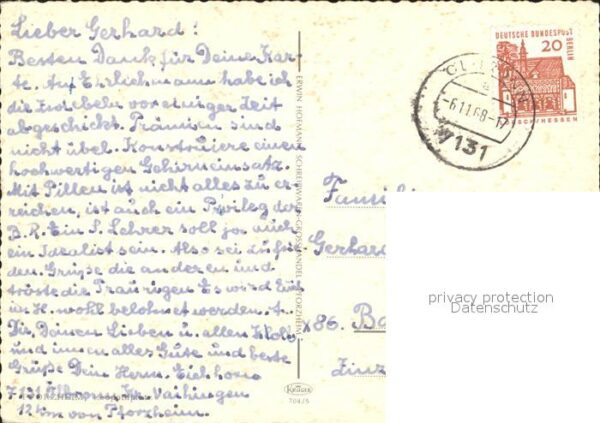 Lieber Gerhard!
Besten Dank für Deine Kar-
te. An Ehrlichmann habe ich
die vor einiger Zeit
abgeschickt. Prämien sind
nicht übel. Konstruiere einen
hochwertigen Gehirneinsatz.
Mit Pillen ist nicht alles zu er-
reichen, ist auch ein Privileg der
B.R. Ein S. Lehrer soll ja auch
ein Idealist sein. Also sei zufrie
den. Grüße die anderen und
tröste die Traurigen Es wird Euch
im H. wohl belohnet werden.
Dir Deinen Lieben u. allen
und innen alles Gute und beste
Grüße Dein Herm.
Vaihingen
12 km von Pforzheim.
ERWIN HOFMANN · SCHREIBWAREN-GROSSHANDEL · PFORZHEIM
Krüger
DEUTSCHE BUNDESPOST BERLIN
20
HESSEN
-6.11.68-17
7131
Familie
Gerhard
86. Ba
privacy protection
Datenschutz